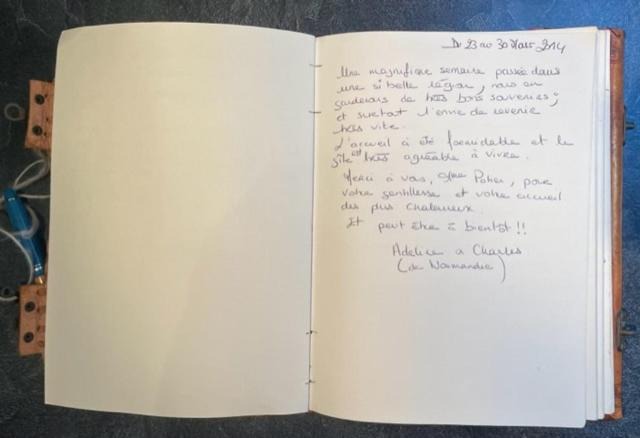 Du 23 au 30 Mars 2014
Une magnifique semaine passée dans
une si belle région, nous en
garderons de très bons souvenirs ;
et surtout l'envie de revenir
très vite.
L'accueil à été formidable et le
gîte est très agréable à vivre.
Merci à vous, Mme Potier, pour
votre gentillesse et votre accueil
des plus chaleureux.
Et peut être à bientôt !!
Adeline & Charles
(de Normandie)